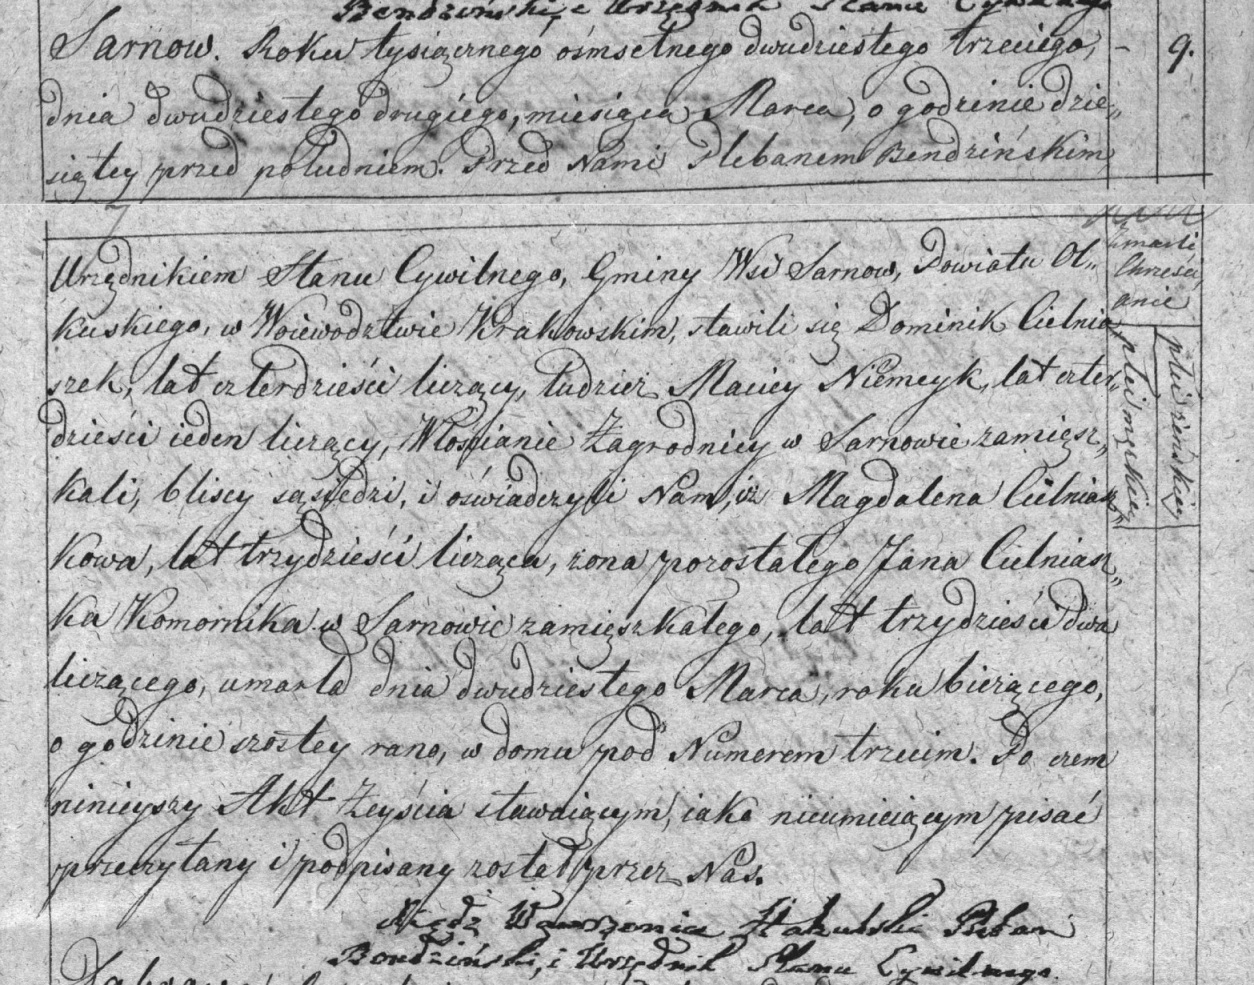 Bendzinski, i Urzędnik Stanu Cywilnego
Sarnow. Roku tysiącznego ośmsetnego dwudziestego trzeciego, - 9.
dnia dwudziestego drugiego, miesiąca Marca, o godzinie dzie„
siątey przed południem. Przed Nami Plebanem Bendzińskim
Urzędnikiem Stanu Cywilnego, Gminy Wsi Sarnow, Powiatu Ol„
kuskiego, w Woiewodztwie Krakowskim, stawili się Dominik Cielnia
szek, lat czterdzieści liczący, tudzież Maciey Niemczyk, lat czter„
dzieści ieden liczący, Włościanie Zagrodnicy w Sarnowie zamięsz„
kali, bliscy sąsiedzi, i oświadczyli Nam, iż Magdalena Cielniasz„
kowa, lat trzydzieści licząca, żona pozostałego Jana Cielniasz„
ka Komornika w Sarnowie zamięszkałego, lat trzydzieści dwa
liczącego, umarła dnia dwudziestego Marca, roku bieżącego,
o godzinie szostey rano, w domu pod Numerem trzecim. Po czem
ninieyszy Akt Zeyścia stawaiącym, iako nieumieiącym pisać
przeczytany i podpisany został przez Nas.
Xiądz Wawrzeniec Pleban
Bendziński, i Urzędnik Stanu Cywilnego.
Zmarli
Chrześci
anie
płci męzkiey
płci żeńskiey